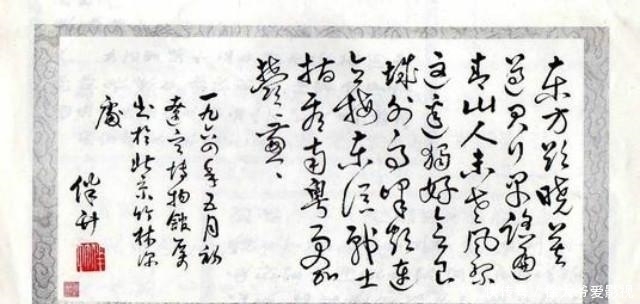 东方欲晓莫
道君行早踏遍
青山人未老风景
这边独好会昌
城外高峰颠连
直接东溟战士
指看南粤更加
鬱々葱々
一九六四年五月
博物館属
书于北京竹林深
处